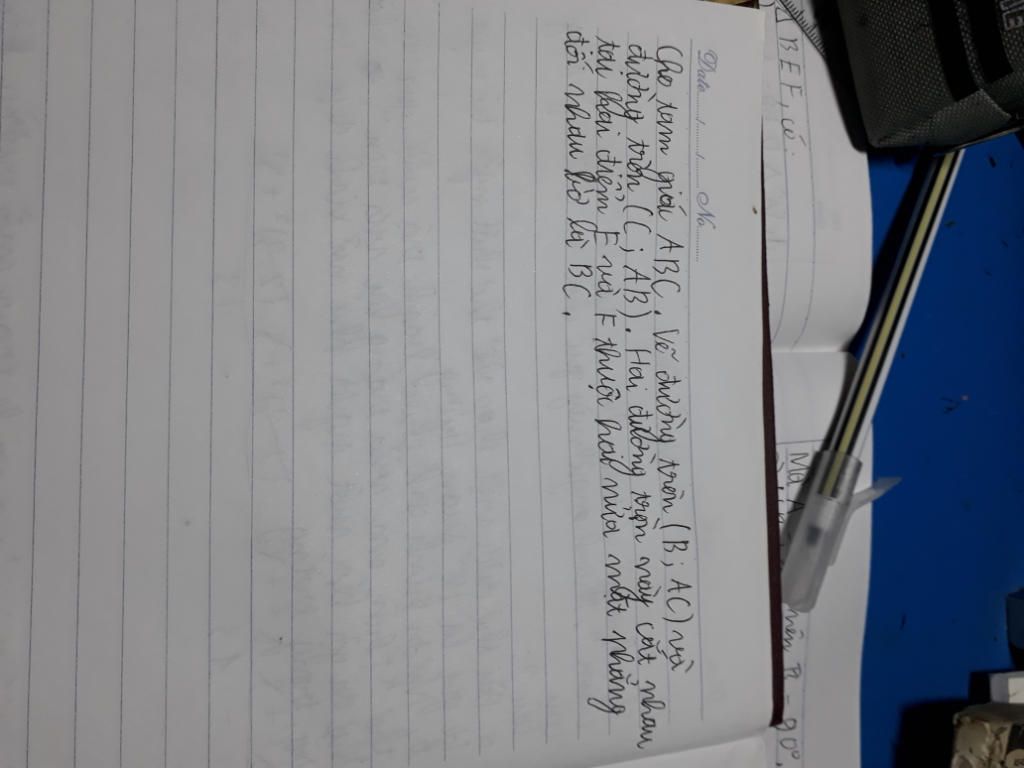 Date ....../....../...... No ............
Cho tam giác ABC. Vẽ đường tròn (B; AC) và
đường tròn (C; AB). Hai đường tròn này cắt nhau
tại hai điểm E và F thuộc hai nửa mặt phẳng
đối nhau bờ là BC.
BEF, có:
nên = 90°.